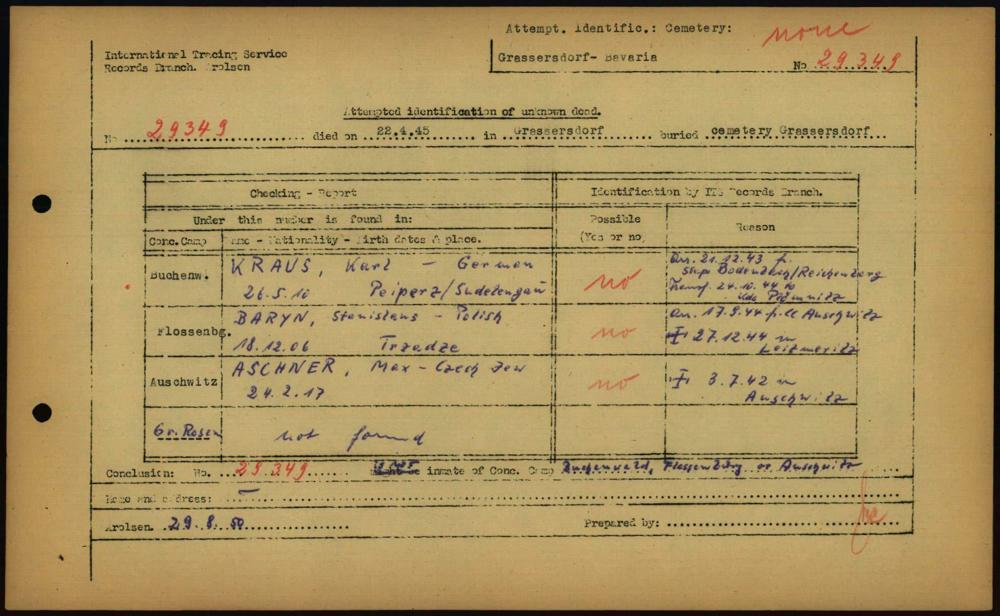 Attempt. Identific.: Cemetery: none
Grassersdorf- Bavaria No 29349
International Tracing Service
Records Branch. Arolsen
Attempted identification of unknown dead.
No 29349 died on 22.4.45 in Grassersdorf buried cemetery Grassersdorf
Checking - Report Identification by ITS Records Branch.
Under this number is found in: Possible (Yes or no) Reason
Conc.Camp Name - Nationality - Birth dates & place.
Buchenw. KRAUS, Karl - German no Arr. 21.12.43 f.
26.5.10 Peiperz/Sudetengau Stapo Bodenbach/Reichenberg
Transf. 24.10.44 to
Kdo
Flossenbg. BARYN, Stanislaus - Polish no Arr. 17.9.44 f. CC Auschwitz
18.12.06 Trzadze 27.12.44 in
Leitmeritz
Auschwitz ASCHNER, Max - Czech Jew no 3.7.42 in
24.2.17 Auschwitz
Gr. Rosen not found
Conclusion: No. 29349 inmate of Conc. Camp Buchenwald, Flossenbürg or Auschwitz
Name and address: —
Arolsen. 29.8.50 Prepared by: